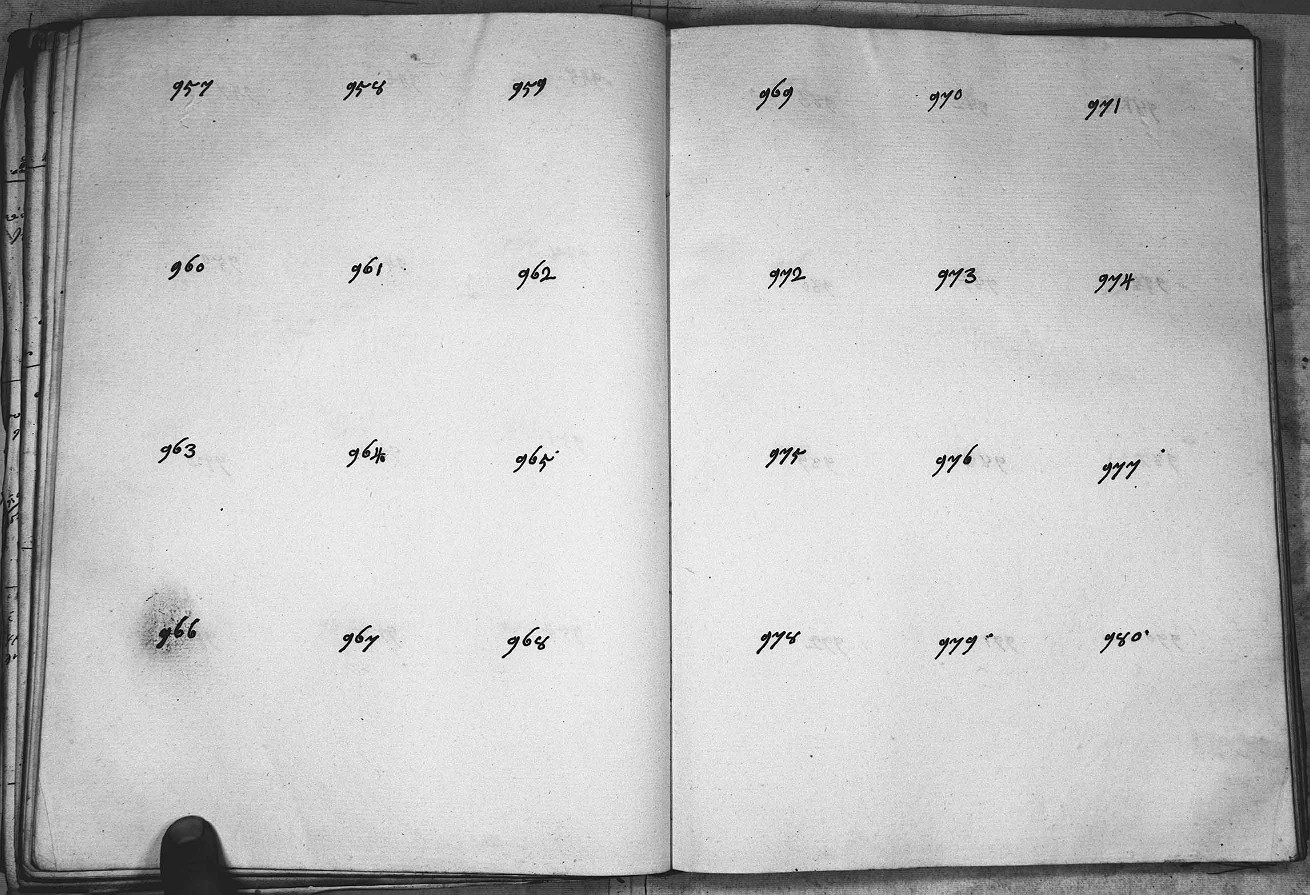 957 958 959
960 961 962
963 964 965
966 967 968
969 970 971
972 973 974
975 976 977
978 979 980